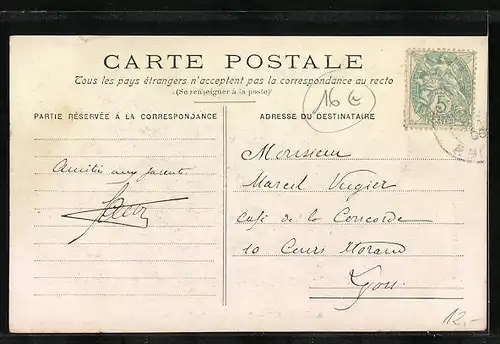 CARTE POSTALE
Tous les pays étrangers n'acceptent pas la correspondance au recto
(Se renseigner à la poste)
16 €
PARTIE RÉSERVÉE À LA CORRESPONDANCE
ADRESSE DU DESTINATAIRE
5
Amitiés aux parents
Monsieur
Marcel Vugier
café de la Concorde
10 Cours Morand
Lyon
12,-